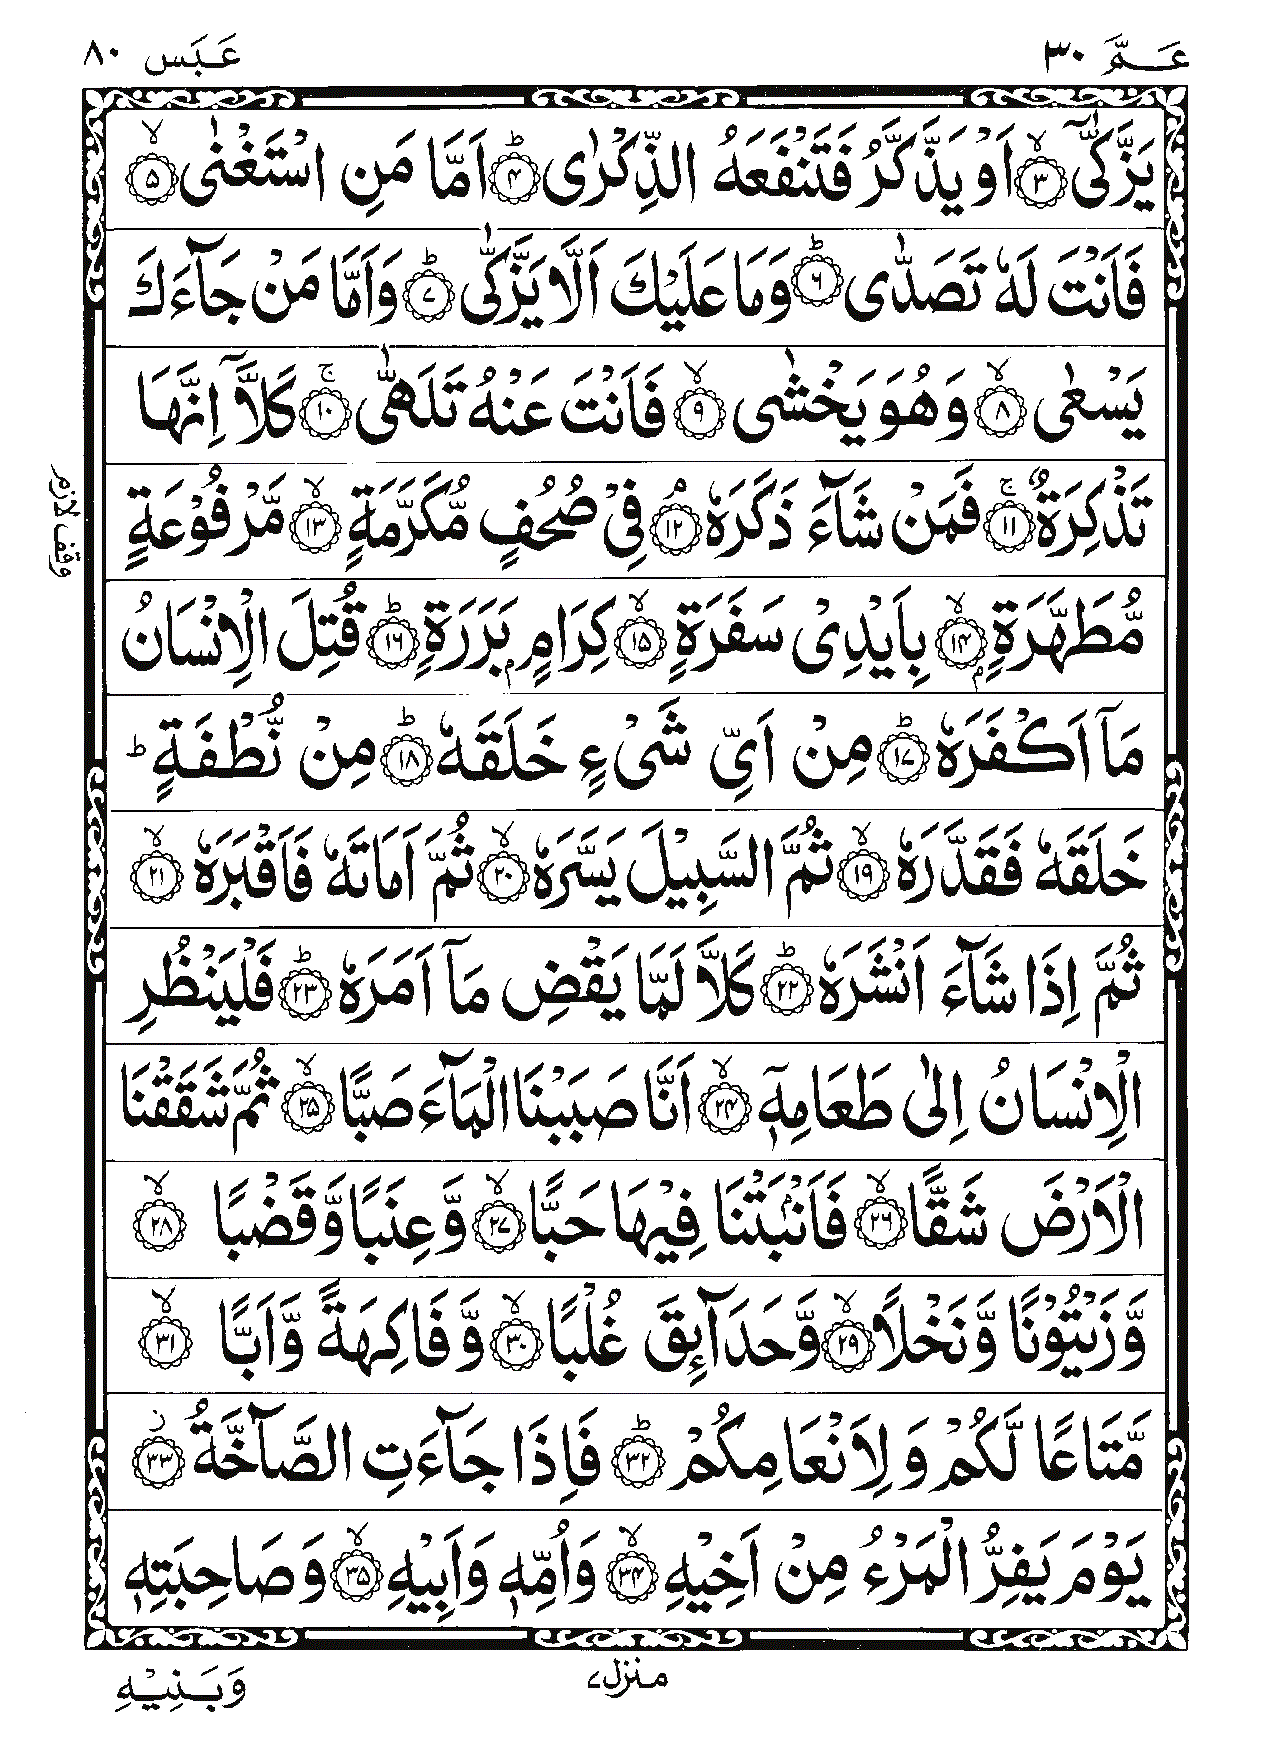 عَـمَّ ٣٠
عَبَسَ ٨٠
يَزَّكّٰىۤ ۙ﴿٣﴾ اَوْ يَذَّكَّرُ فَتَنْفَعَهُ الذِّكْرٰى ؕ﴿٤﴾ اَمَّا مَنِ اسْتَغْنٰى ۙ﴿٥﴾
فَاَنْتَ لَهٗ تَصَدّٰى ؕ﴿٦﴾ وَمَا عَلَيْكَ اَلَّا يَزَّكّٰى ؕ﴿٧﴾ وَاَمَّا مَنْ جَآءَكَ
يَسْعٰى ۙ﴿٨﴾ وَهُوَ يَخْشٰى ۙ﴿٩﴾ فَاَنْتَ عَنْهُ تَلَهّٰى ۚ﴿١٠﴾ كَلَّاۤ اِنَّهَا
تَذْكِرَةٌ ۚ﴿١١﴾ فَمَنْ شَآءَ ذَكَرَهٗ ۘ﴿١٢﴾ فِىْ صُحُفٍ مُّكَرَّمَةٍ ۙ﴿١٣﴾ مَّرْفُوْعَةٍ
وقف لازم
مُّطَهَّرَةٍۭ ۙ﴿١٤﴾ بِاَيْدِىْ سَفَرَةٍ ۙ﴿١٥﴾ كِرَامٍۭ بَرَرَةٍ ؕ﴿١٦﴾ قُتِلَ الْاِنْسَانُ
مَاۤ اَكْفَرَهٗ ؕ﴿١٧﴾ مِنْ اَىِّ شَىْءٍ خَلَقَهٗ ؕ﴿١٨﴾ مِنْ نُّطْفَةٍ ؕ
خَلَقَهٗ فَقَدَّرَهٗ ۙ﴿١٩﴾ ثُمَّ السَّبِيْلَ يَسَّرَهٗ ۙ﴿٢٠﴾ ثُمَّ اَمَاتَهٗ فَاَقْبَرَهٗ ۙ﴿٢١﴾
ثُمَّ اِذَا شَآءَ اَنْشَرَهٗ ؕ﴿٢٢﴾ كَلَّا لَمَّا يَقْضِ مَاۤ اَمَرَهٗ ؕ﴿٢٣﴾ فَلْيَنْظُرِ
الْاِنْسَانُ اِلٰى طَعَامِهٖۤ ۙ﴿٢٤﴾ اَنَّا صَبَبْنَا الْمَآءَ صَبًّا ۙ﴿٢٥﴾ ثُمَّ شَقَقْنَا
الْاَرْضَ شَقًّا ۙ﴿٢٦﴾ فَاَنْۢبَتْنَا فِيْهَا حَبًّا ۙ﴿٢٧﴾ وَّعِنَبًا وَّقَضْبًا ۙ﴿٢٨﴾
وَّزَيْتُوْنًا وَّنَخْلًا ۙ﴿٢٩﴾ وَّحَدَآئِقَ غُلْبًا ۙ﴿٣٠﴾ وَّفَاكِهَةً وَّاَبًّا ۙ﴿٣١﴾
مَّتَاعًا لَّكُمْ وَلِاَنْعَامِكُمْ ؕ﴿٣٢﴾ فَاِذَا جَآءَتِ الصَّآخَّةُ ۫﴿٣٣﴾
يَوْمَ يَفِرُّ الْمَرْءُ مِنْ اَخِيْهِ ۙ﴿٣٤﴾ وَاُمِّهٖ وَاَبِيْهِ ۙ﴿٣٥﴾ وَصَاحِبَتِهٖ
منزل٧
وَبَنِيْهِ